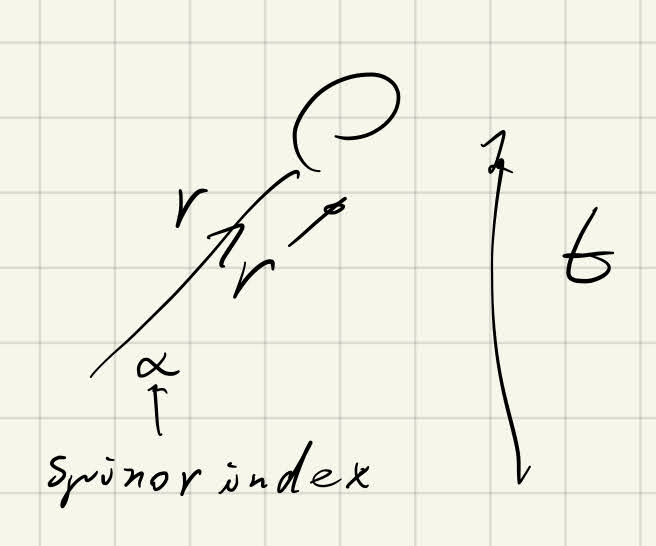 r
r
t
α
spinor index